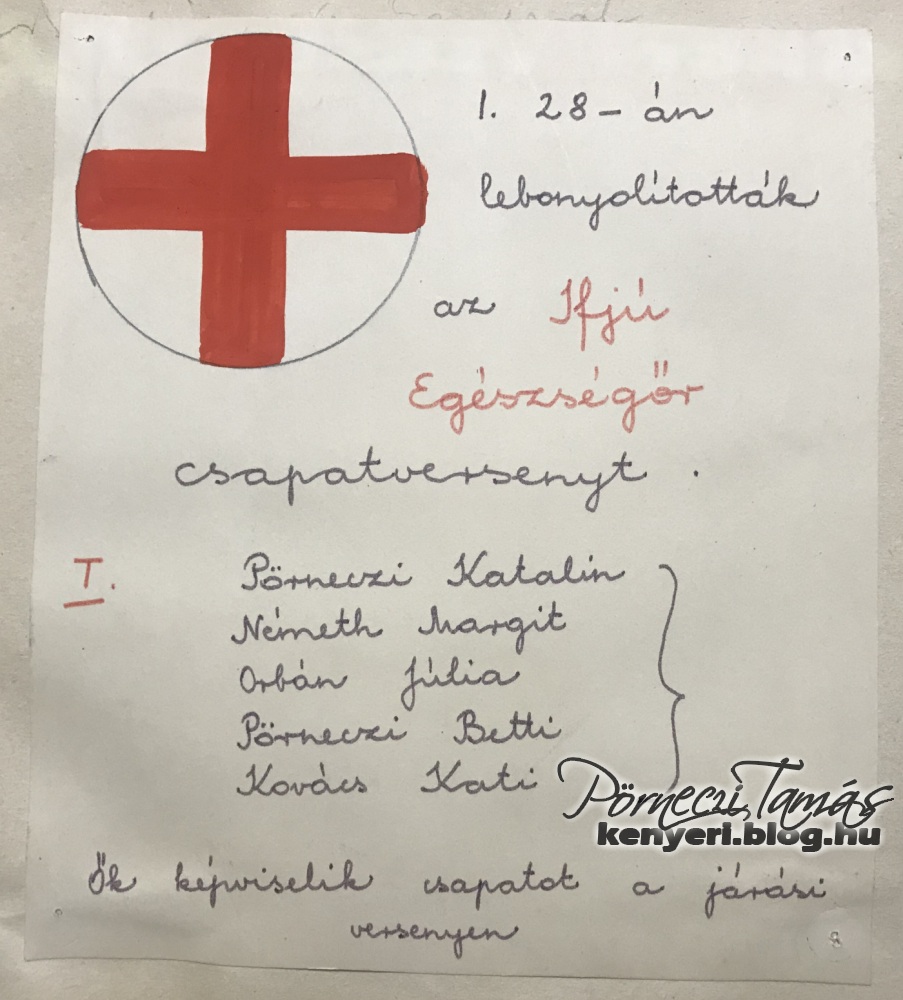 I. 28-án
lebonyolították
az Ifjú
Egészségőr
csapatversenyt.
I. Pörneczi Katalin
Németh Margit
Orbán Júlia
Pörneczi Betti
Kovács Kati
Pörneczi Tamás
kenyeri.blog.hu
Ők képviselik csapatot a járási
versenyen
8